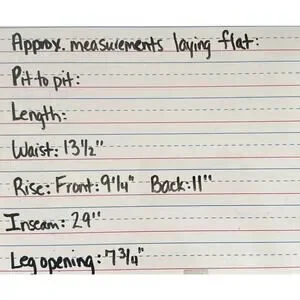 Approx. measurements laying flat:
Pit to pit:
Length:
Waist: 13 1/2"
Rise: Front: 9 1/4" Back: 11"
Inseam: 29"
Leg opening: 7 3/4"